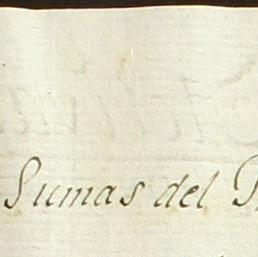 Sumas del